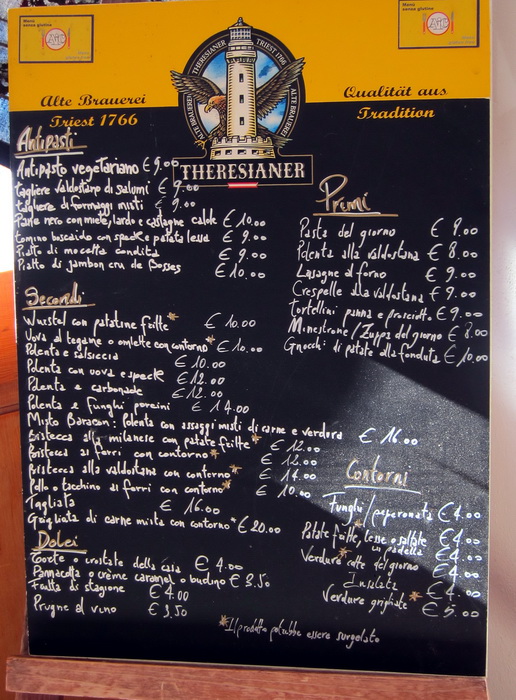 Menù senza glutine
AIC
Menù senza glutine
AIC
Alte Brauerei
Triest 1766
Qualität aus
Tradition
ALTE BRAUEREI THERESIANER TRIEST 1766 ALTE BRAUEREI
THERESIANER
Antipasti
Antipasto vegetariano € 9.00
tagliere valdostano di salumi € 9.00
tagliere di formaggi misti € 9.00
Pane nero con miele, lardo e castagne calde € 10.00
Tomino boscaiolo con speck e patata lessa € 9.00
Piatto di mocetta condita € 9.00
Piatto di jambon cru de Bosses € 10.00
Primi
Pasta del giorno € 9.00
Polenta alla valdostana € 8.00
Lasagne al forno € 9.00
Crespelle alla valdostana € 9.00
Tortellini panna e prosciutto € 9.00
Minestrone / Zuppa del giorno € 8.00
Gnocchi di patate alla fonduta € 10.00
Secondi
Wurstel con patatine fritte* € 10.00
Uova al tegame o omlette con contorno* € 10.00
Polenta e salsiccia € 10.00
Polenta con uova e speck € 12.00
Polenta e carbonade € 12.00
Polenta e funghi porcini € 14.00
Misto Baracon: Polenta con assaggi misti di carne e verdura € 16.00
Bistecca alla milanese con patate fritte* € 12.00
Bistecca ai ferri con contorno* € 12.00
Bistecca alla valdostana con contorno* € 14.00
Pollo o tacchino ai ferri con contorno* € 10.00
Tagliata € 16.00
Grigliata di carne mista con contorno* € 20.00
Contorni
Funghi/peperonata € 4.00
Patate fritte, lesse o saltate € 4.00
in padella € 4.00
Verdure* cotte del giorno € 4.00
Insalata € 4.00
Verdure grigliate* € 5.00
Dolci
Torte o crostate della casa € 4.00
Pannacotta o crème caramel o budino € 3.50
Frutta di stagione € 4.00
Prugne al vino € 3,50
*Il prodotto potrebbe essere surgelato